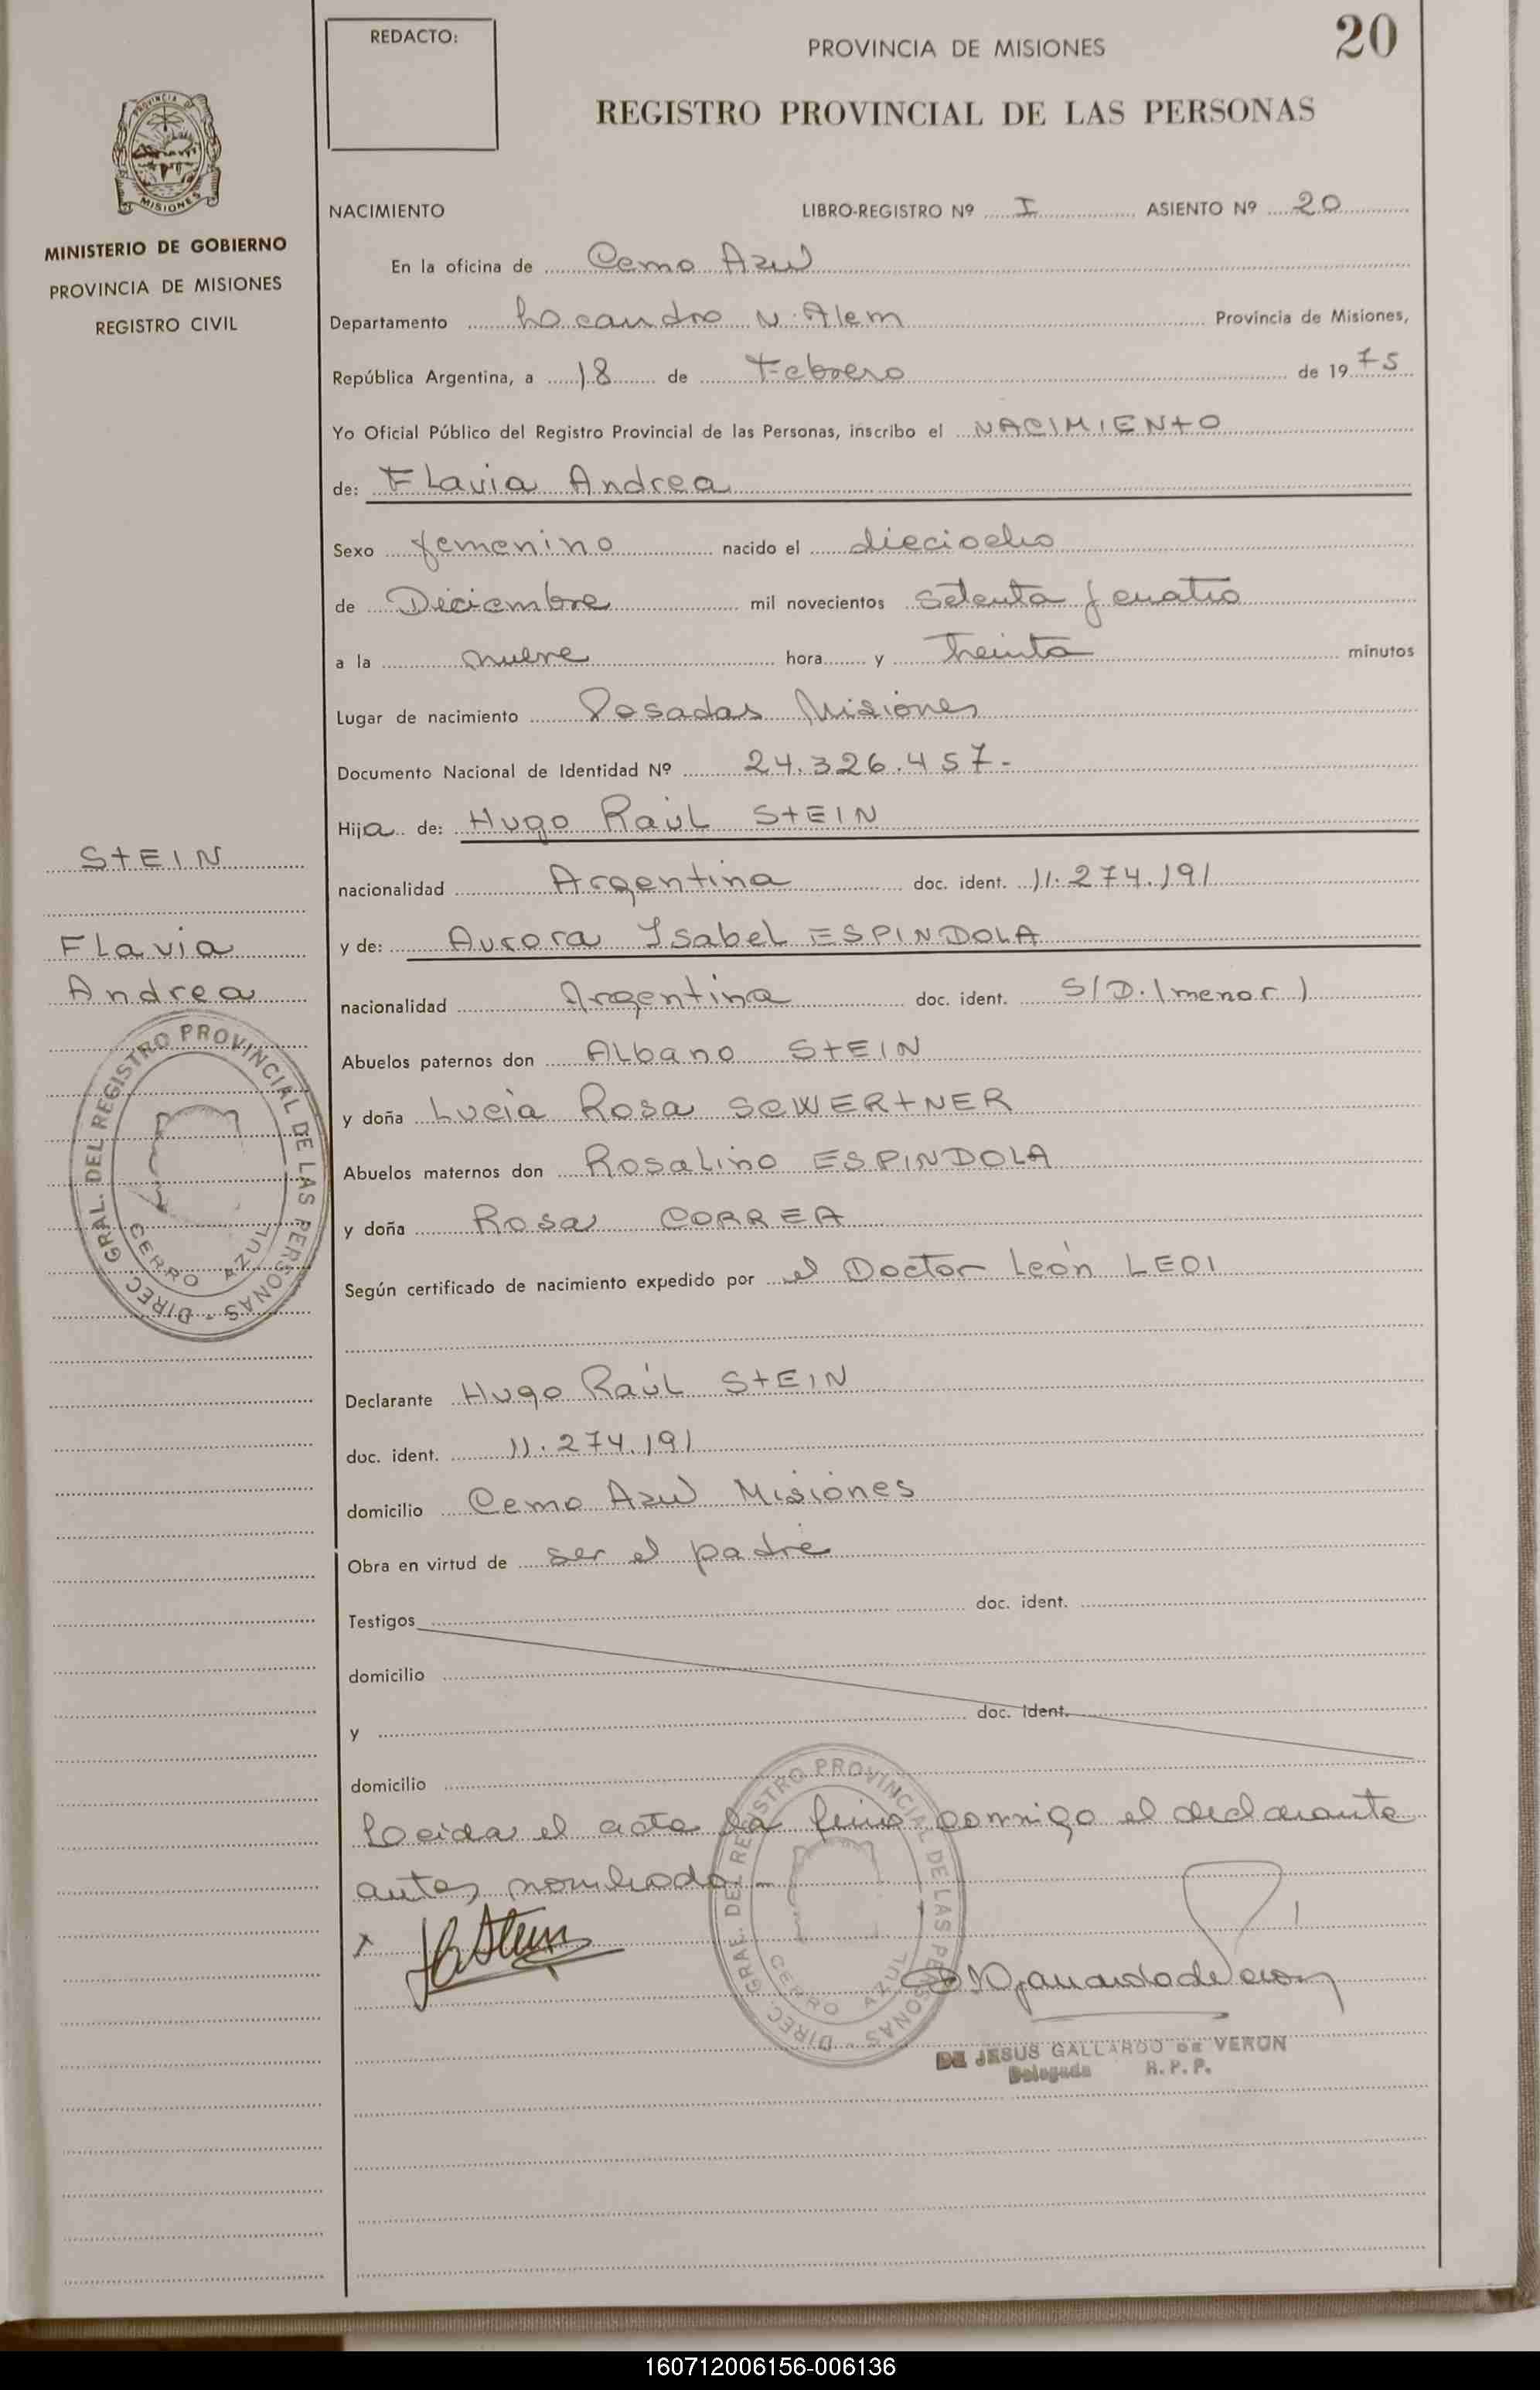 REDACTO:
PROVINCIA DE MISIONES
20
REGISTRO PROVINCIAL DE LAS PERSONAS
PROVINCIA DE
MISIONES
MINISTERIO DE GOBIERNO
PROVINCIA DE MISIONES
REGISTRO CIVIL
NACIMIENTO LIBRO-REGISTRO Nº I ASIENTO Nº 20
En la oficina de Cerro Azul
Departamento Leandro N. Alem Provincia de Misiones,
República Argentina, a 18 de Febrero de 1975
Yo Oficial Público del Registro Provincial de las Personas, inscribo el NACIMIENTO
de: Flavia Andrea
Sexo femenino nacido el dieciocho
de Diciembre mil novecientos setenta y cuatro
a la nueve hora y treinta minutos
Lugar de nacimiento Posadas Misiones
Documento Nacional de Identidad Nº 24.326.457.-
Hija de: Hugo Raúl STEIN
nacionalidad Argentina doc. ident. 11.274.191
y de: Aurora Ysabel ESPINDOLA
nacionalidad Argentina doc. ident. S/D. (menor)
Abuelos paternos don Albano STEIN
y doña Lucía Rosa SCWERTNER
Abuelos maternos don Rosalino ESPINDOLA
y doña Rosa CORREA
Según certificado de nacimiento expedido por el Doctor León LEDI
Declarante Hugo Raúl STEIN
doc. ident. 11.274.191
domicilio Cerro Azul Misiones
Obra en virtud de ser el padre
Testigos doc. ident.
domicilio
y doc. ident.
domicilio
Leida el acta la firma conmigo el declarante
antes nombrado.-
x HRStein
DE JESUS GALLARDO DE VERON
Delegada R.P.P.
STEIN
Flavia
Andrea
DIREC. GRAL. DEL REGISTRO PROVINCIAL DE LAS PERSONAS -
CERRO AZUL
DIREC. GRAL. DEL REGISTRO PROVINCIAL DE LAS PERSONAS -
CERRO AZUL
160712006156-006136